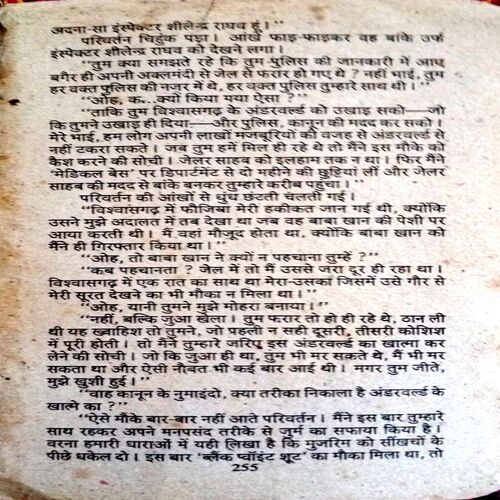 अदना-सा इंस्पेक्टर शीलेन्द्र राघव हूं।"
परिवर्तन चिहुंक पड़ा। आंखें फाड़-फाड़कर वह बांके उर्फ
इंस्पेक्टर शीलेन्द्र राघव को देखने लगा।
"तुम क्या समझते रहे कि तुम पुलिस की जानकारी में आए
बगैर ही अपनी अक्लमंदी से जेल से फरार हो गए थे ? नहीं भाई, तुम
हर वक्त पुलिस की नजर में थे, हर वक्त पुलिस तुम्हारे साथ थी।"
"ओह, क...क्यों किया गया ऐसा ?"
"ताकि तुम विश्वासगढ़ के अंडरवर्ल्ड को उखाड़ सको—जो
कि तुमने उखाड़ ही दिया—और पुलिस, कानून की मदद कर सको।
मेरे भाई, हम लोग अपनी लाखों मजबूरियों की वजह से अंडरवर्ल्ड से
नहीं टकरा सकते। जब तुम हमें मिल ही रहे थे तो मैंने इस मौके को
कैश करने की सोची। जेलर साहब को इलहाम तक न था। फिर मैंने
'मेडिकल बेस' पर डिपार्टमेंट से दो महीने की छुट्टियां लीं और जेलर
साहब की मदद से बांके बनकर तुम्हारे करीब पहुंचा।"
परिवर्तन की आंखों से धुंध छंटती चलती गई।
"विश्वासगढ़ में फौजिया मेरी हकीकत जान गई थी, क्योंकि
उसने मुझे अदालत में तब देखा था जब वह बाबा खान की पेशी पर
आया करती थी। मैं वहां मौजूद होता था, क्योंकि बाबा खान को
मैंने ही गिरफ्तार किया था।"
"ओह, तो बाबा खान ने क्यों न पहचाना तुम्हें ?"
"कब पहचानता ? जेल में तो मैं उससे जरा दूर ही रहा था।
विश्वासगढ़ में एक रात का साथ था मेरा-उसका जिसमें उसे गौर से
मेरी सूरत देखने का भी मौका न मिला था।"
"ओह, यानी तुमने मुझे मोहरा बनाया।"
"नहीं, बल्कि जुआ खेला। तुम फरार तो हो ही रहे थे, ठान ली
थी यह ख्वाहिश तो तुमने, जो पहली न सही दूसरी, तीसरी कोशिश
में पूरी होती। तो मैंने तुम्हारे जरिए इस अंडरवर्ल्ड का खात्मा कर
लेने की सोची। जो कि जुआ ही था, तुम भी मर सकते थे, मैं भी मर
सकता था और ऐसी नौबत भी कई बार आई थी। मगर तुम जीते,
मुझे खुशी हुई।"
"वाह कानून के नुमाइंदो, क्या तरीका निकाला है अंडरवर्ल्ड के
खात्मे का ?"
"ऐसे मौके बार-बार नहीं आते परिवर्तन। मैंने इस बार तुम्हारे
साथ रहकर अपने मनपसंद तरीके से जुर्म का सफाया किया है।
वरना हमारी धाराओं में यही लिखा है कि मुजरिम को सींखचों के
पीछे धकेल दो। इस बार 'ब्लैंक प्वॉइंट शूट' का मौका मिला था, तो
255